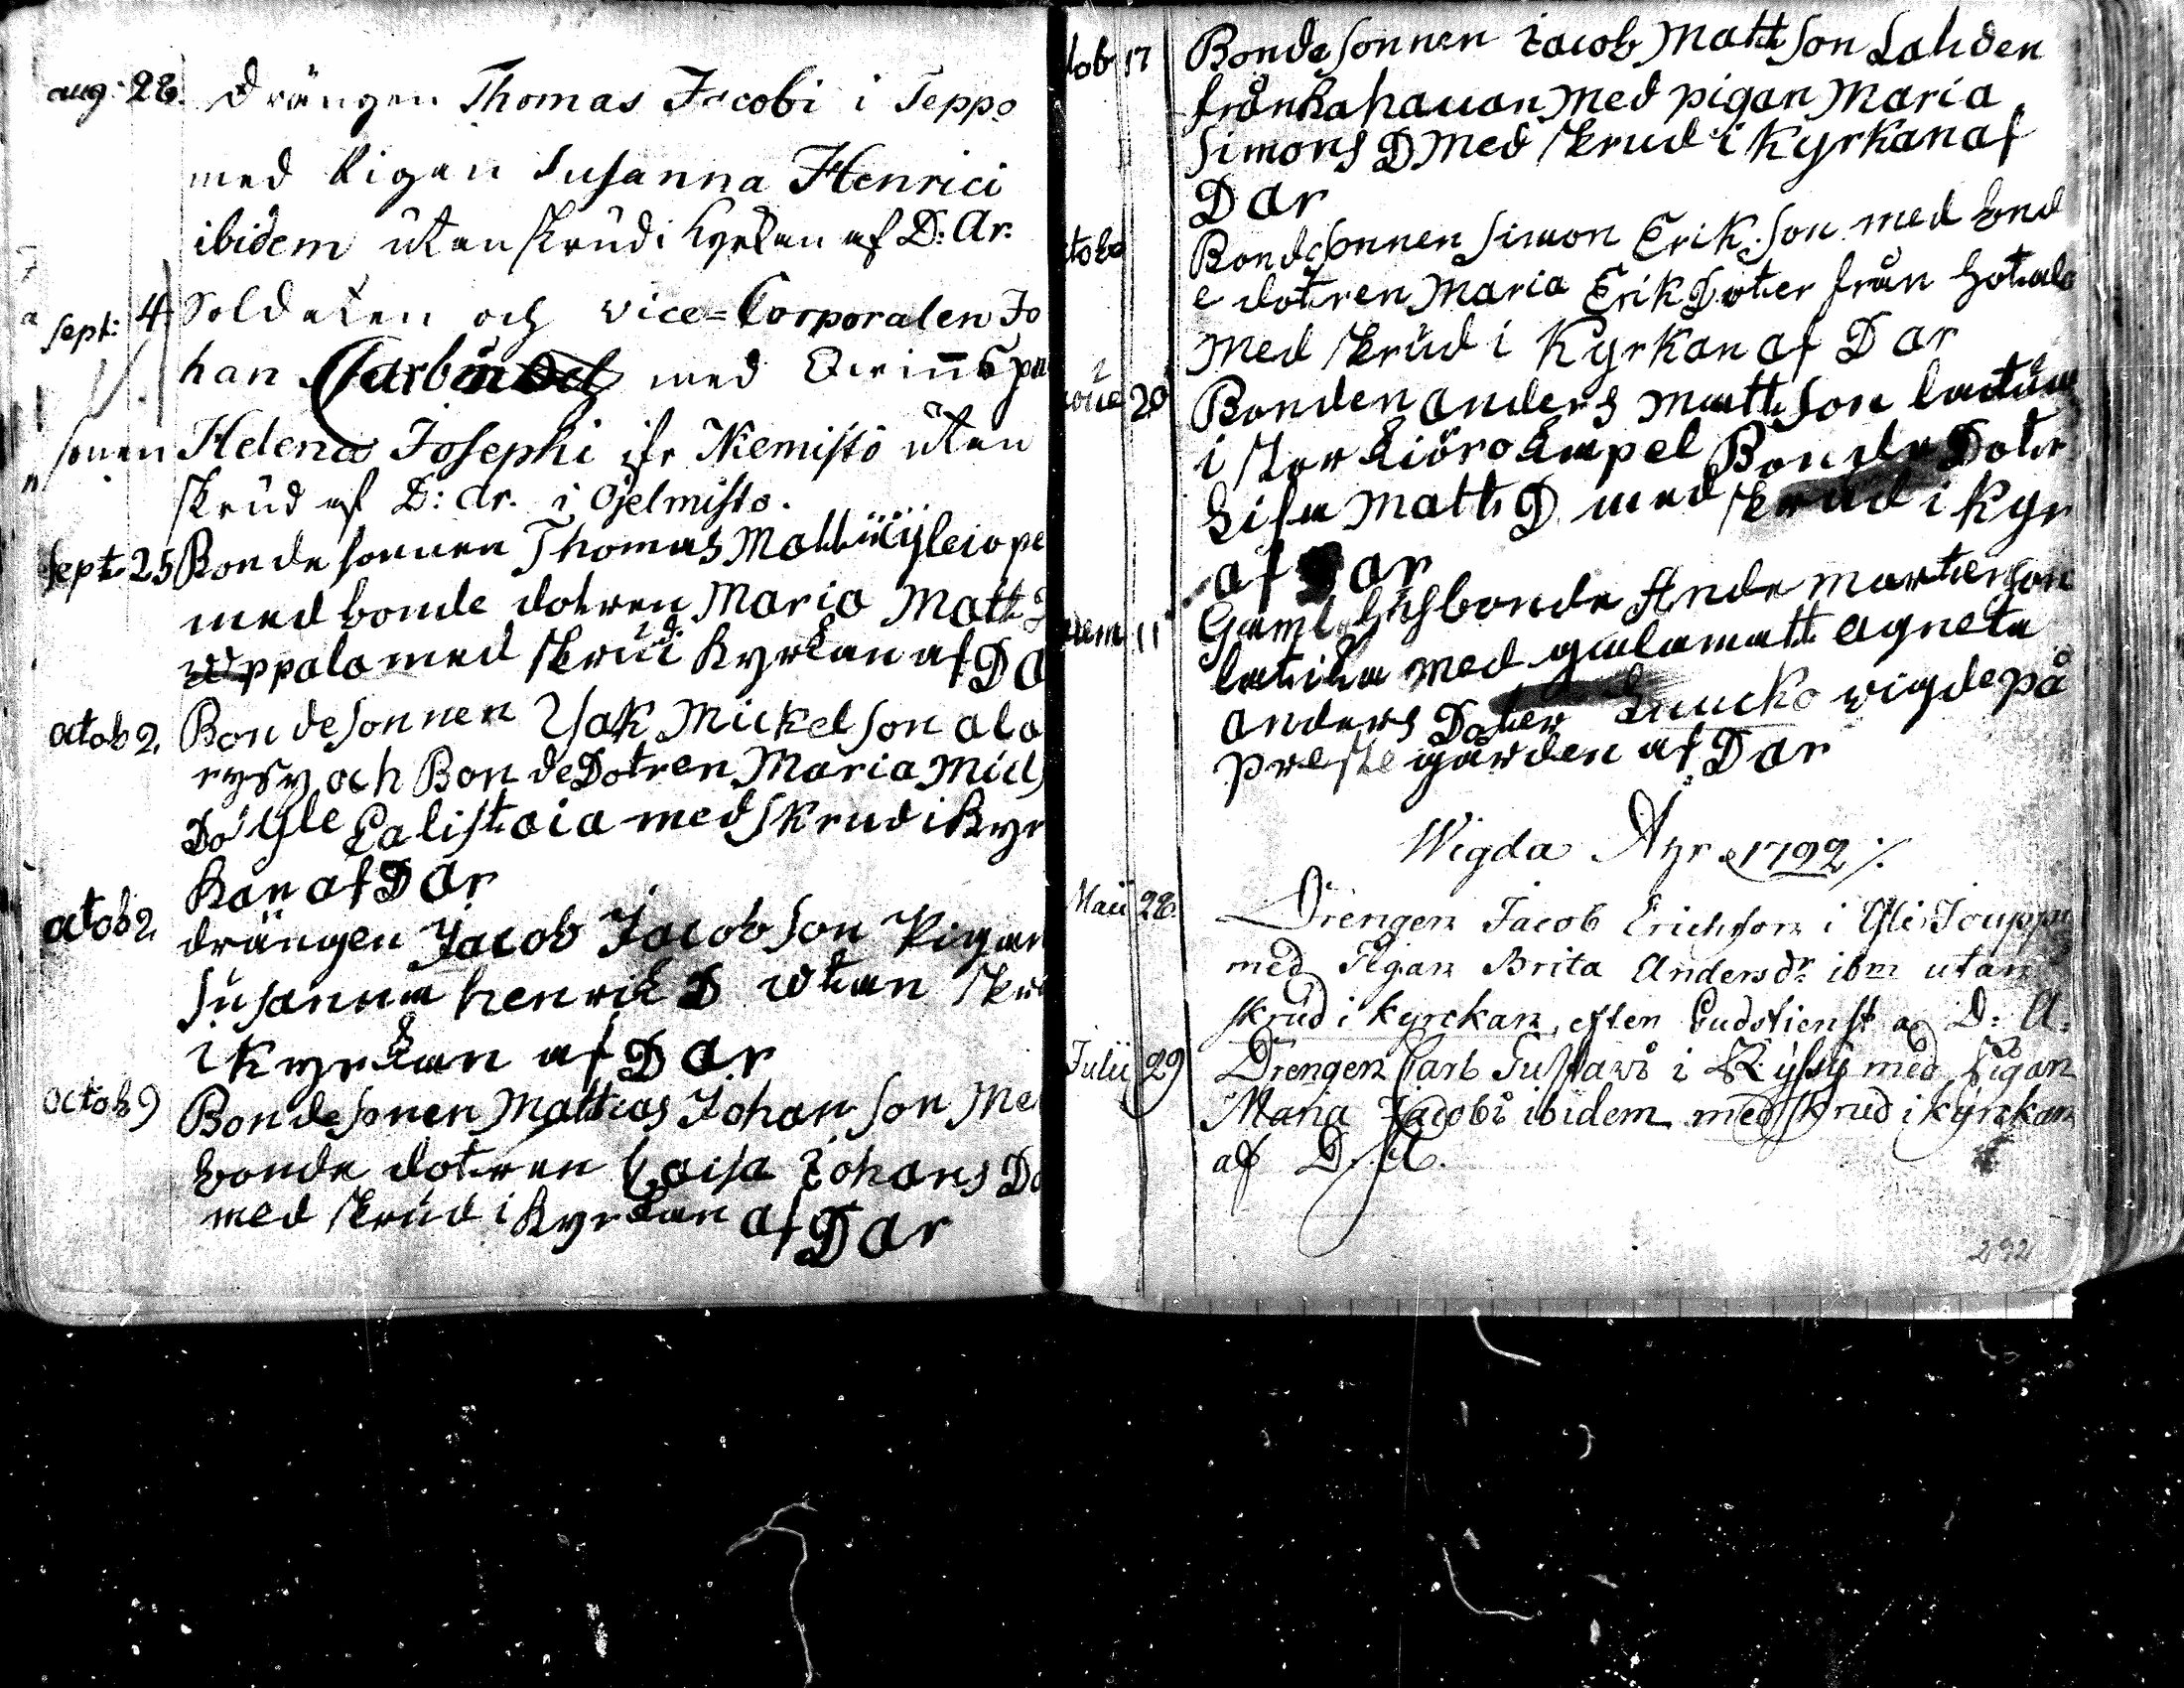 aug: 28. Drängen Thomas Jacobi i Teppo
med Pigan Susanna Henrici
ibidem utan skrud i kyrkan af D: Ar.
sept: 4. Soldaten och vice=Corporalen Jo
han med
Helena Josephi ifr Niemistö utan
skrud af D: Ar. i Gielmisto.
sept 25 Bonde sonnen Thomas
med bonde dotren Maria Matts
uppala med skrud i kyrkan af D a
octob 2. Bondesonnen Isak Mickelson ala
rysy och Bonde Dotren Maria Mick
Do Yle Palistaia med skrud i Kyr
kan af D ar
octob 2 drängen Jacob Jacobson Pigan
Susanna henrik D utan skru
i kyrkan af D ar
octob 9 Bondesonen Mattias Johanson Me
bonde dotren Caisa Johans Do
med skrud i kyrkan af D ar
tob 17 Bondesonnen Jacob Mattson Lahden
från kahauan med pigan Maria
Simons D med skrud i kyrkan af
D ar
tob Bondesonnen Simon Erikson med bond
e dotren Maria Erik Doter från
med skrud i Kyrkan af D ar
nove 20 Bonden anders Mattson
i Stor Bonde Dotr
Lisa Matts D med skrud i kyr
af D ar
vem 11 Gaml. husbonde Ande Martenson
med Agneta
anders Doter vigde på
Prestegården af D ar
Wigda Åhr 1792 ./.
Maii 28. Drengen Jacob Erichson i Yli Jouppi
med Pigan Brita Andersdr ibm utan
skrud i kyrckan, efter Gudstienst af D: A:
Julii 29 Drengen Carl Gustavi i Rysy med Pigan
Maria Jacobi ibidem med skrud i kyrckan
af D. A.
292